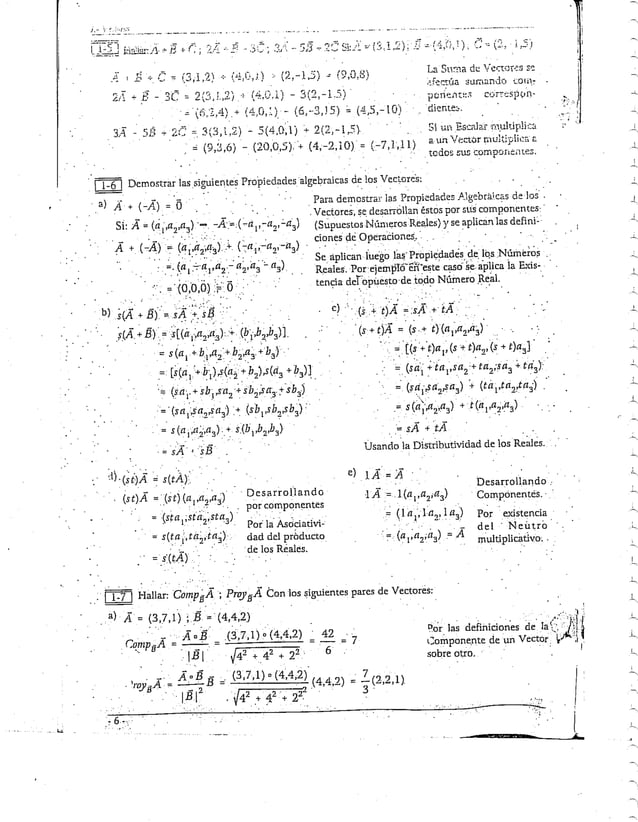 1-5 Hallar: A⃗ + B⃗ + C⃗ ; 2A⃗ + B⃗ - 3C⃗ ; 3A⃗ - 5B⃗ + 2C⃗ Si: A⃗ = (3,1,2); B⃗ = (4,0,1), C⃗ = (2,-1,5)
A⃗ + B⃗ + C⃗ = (3,1,2) + (4,0,1) + (2,-1,5) = (9,0,8)
2A⃗ + B⃗ - 3C⃗ = 2(3,1,2) + (4,0,1) - 3(2,-1,5)
= (6,2,4) + (4,0,1) - (6,-3,15) = (4,5,-10)
3A⃗ - 5B⃗ + 2C⃗ = 3(3,1,2) - 5(4,0,1) + 2(2,-1,5)
= (9,3,6) - (20,0,5) + (4,-2,10) = (-7,1,11)
La Suma de Vectores se
efectúa sumando com-
ponentes correspon-
dientes.
Si un Escalar multiplica
a un Vector multiplica a
todos sus componentes.
1-6 Demostrar las siguientes Propiedades algebraicas de los Vectores:
a) A⃗ + (-A⃗) = 0⃗
Si: A⃗ = (a₁,a₂,a₃) → -A⃗ = (-a₁,-a₂,-a₃)
A⃗ + (-A⃗) = (a₁,a₂,a₃) + (-a₁,-a₂,-a₃)
= (a₁ - a₁,a₂ - a₂,a₃ - a₃)
= (0,0,0) = 0⃗
Para demostrar las Propiedades Algebraicas de los
Vectores, se desarrollan éstos por sus componentes
(Supuestos Números Reales) y se aplican las defini-
ciones de Operaciones.
Se aplican luego las Propiedades de los Números
Reales. Por ejemplo en este caso se aplica la Exis-
tencia del opuesto de todo Número Real.
b) s(A⃗ + B⃗) = sA⃗ + sB⃗
s(A⃗ + B⃗) = s[(a₁,a₂,a₃) + (b₁,b₂,b₃)]
= s(a₁ + b₁,a₂ + b₂,a₃ + b₃)
= [s(a₁ + b₁),s(a₂ + b₂),s(a₃ + b₃)]
= (sa₁ + sb₁,sa₂ + sb₂,sa₃ + sb₃)
= (sa₁,sa₂,sa₃) + (sb₁,sb₂,sb₃)
= s(a₁,a₂,a₃) + s(b₁,b₂,b₃)
= sA⃗ + sB⃗
c) (s + t)A⃗ = sA⃗ + tA⃗
(s + t)A⃗ = (s + t)(a₁,a₂,a₃)
= [(s + t)a₁,(s + t)a₂,(s + t)a₃]
= (sa₁ + ta₁,sa₂ + ta₂,sa₃ + ta₃)
= (sa₁,sa₂,sa₃) + (ta₁,ta₂,ta₃)
= s(a₁,a₂,a₃) + t(a₁,a₂,a₃)
= sA⃗ + tA⃗
Usando la Distributividad de los Reales.
d) (st)A⃗ = s(tA⃗)
(st)A⃗ = (st)(a₁,a₂,a₃)
= (sta₁,sta₂,sta₃)
= s(ta₁,ta₂,ta₃)
= s(tA⃗)
Desarrollando
por componentes
Por la Asociativi-
dad del producto
de los Reales.
e) 1A⃗ = A⃗
1A⃗ = 1(a₁,a₂,a₃)
= (1a₁,1a₂,1a₃)
= (a₁,a₂,a₃) = A⃗
Desarrollando
Componentes.
Por existencia
del Neutro
multiplicativo.
1-7 Hallar: Comp_B A⃗ ; Proy_B A⃗ Con los siguientes pares de Vectores:
a) A⃗ = (3,7,1) ; B⃗ = (4,4,2)
Comp_B A⃗ = A⃗∘B⃗ / |B⃗| = (3,7,1)∘(4,4,2) / √(4² + 4² + 2²) = 42/6 = 7
Proy_B A⃗ = A⃗∘B⃗ / |B⃗|² B⃗ = (3,7,1)∘(4,4,2) / √(4² + 4² + 2²)² (4,4,2) = 7/3 (2,2,1)
Por las definiciones de la
Componente de un Vector
sobre otro.
- 6 -